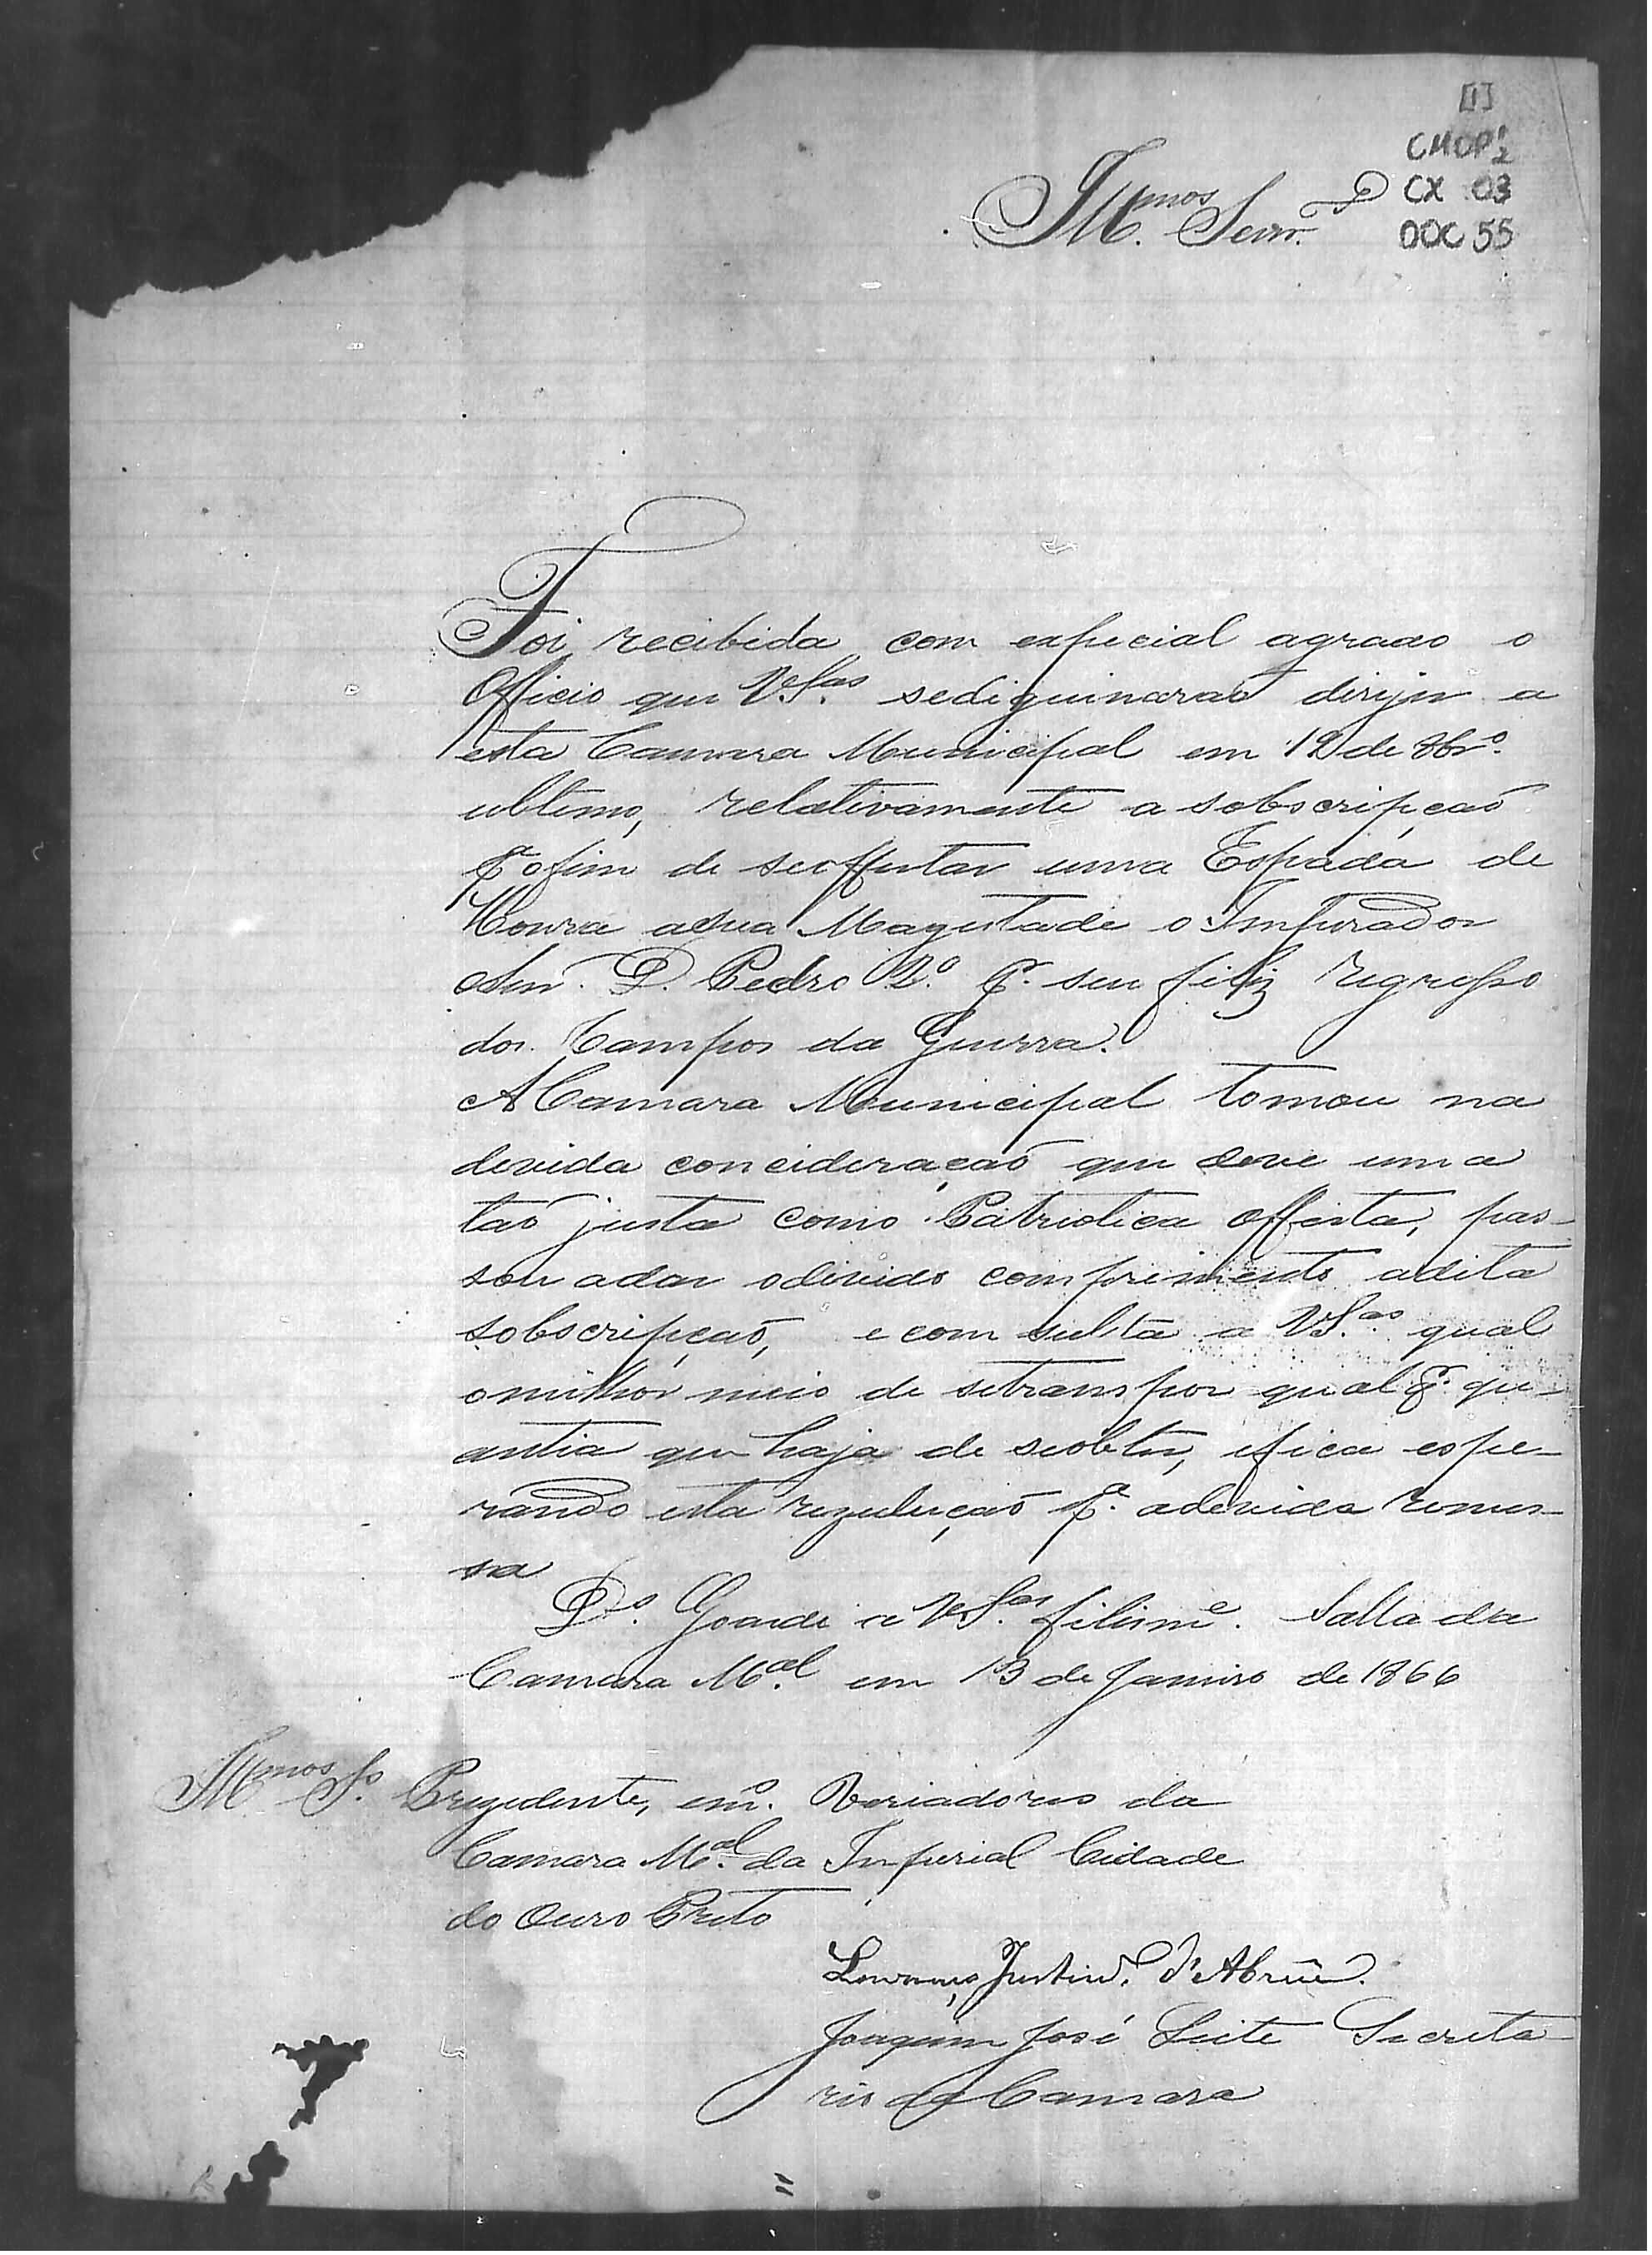 [1]
CMOP 1/2
CX 03
DOC 55
Illmos. Senr.es
Foi recibida com especial agrado o
Officio que V.Sas. sediguinaraõ dirijir a
esta Camara Municipal em 12 de 8bro.
ultimo, relativamente a sobscripçaõ
pa. ofim de seoffertar uma Espada de
Honra aSua Magestade o Imperador
Senr. D. Pedro 2o. Pr. seu feliz regresso
dos Campos da Guerra.
A Camara Municipal tomou na
devida concideraçaõ que deve uma
taõ justa como Patriotica offerta, pas-
sou adar odivido comprimento adita
sobscripçaõ, e com sulta a VS.as qual
omilhor meio de setranspor qualqr. qu-
antia que haja de seobter, efica espe-
rando esta rezuluçaõ pa. adevida remes-
sa
Ds. Goarde a VS.as felisme. Salla da
Camara Mal. em 13 de Janeiro de 1866
Illmos Srs. Prezidente, emo. Veriadores da
Camara Mal. da Imperial Cidade
do Ouro Preto
Lourenço Justino. d'Abreu.
Joaquim José Leite Secreta-
rio da Camara